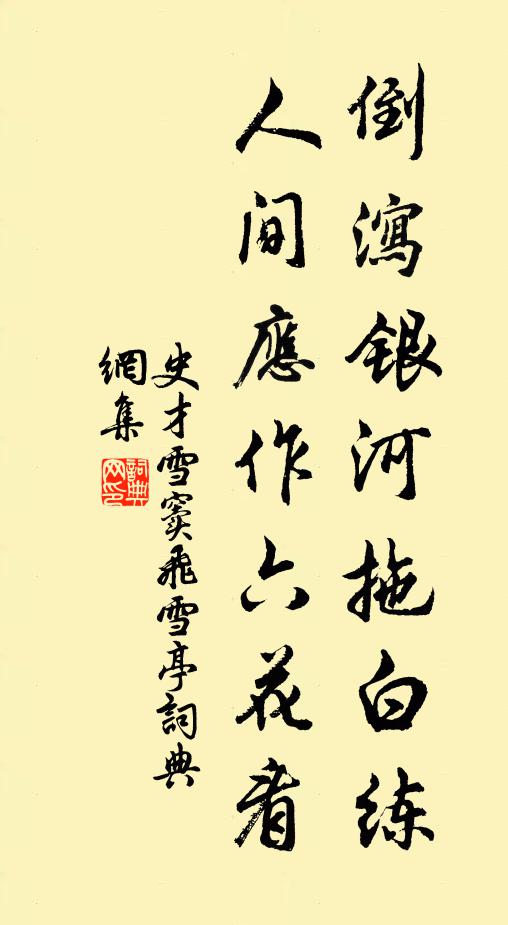 倒瀉銀河拖白练
人間應作六花看
史才雪窦飛雪亭詞典
網集
詞典網印